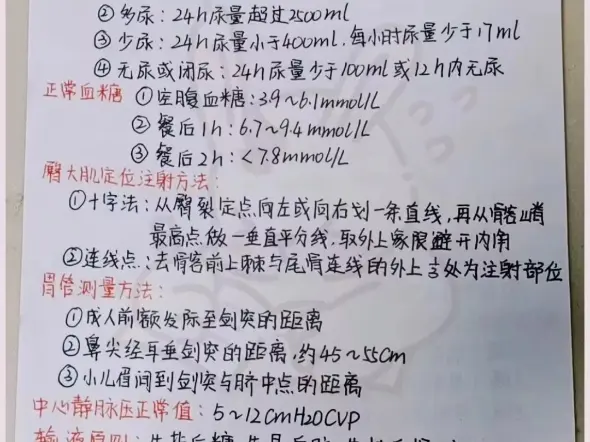 ② 多尿：24h尿量超过2500ml
③ 少尿：24h尿量小于400ml，每小时尿量少于17ml
④ 无尿或闭尿：24h尿量少于100ml或12h内无尿
正常血糖 ①空腹血糖：3.9~6.1mmol/L
② 餐后1h：6.7~9.4mmol/L
③ 餐后2h：<7.8mmol/L
臀大肌定位注射方法：
①十字法：从臀裂定点向左或向右划一条直线，再从骨客嵴
最高点做一垂直平分线，取外上象限避开内角
②连线点：去骨客前上棘与尾骨连线的外上⅓处为注射部位
胃管测量方法：
①成人前额发际至剑突的距离
②鼻尖经耳垂剑突的距离，约45~55cm
③小儿眉间到剑突与脐中点的距离
中心静脉压正常值：5~12cmH2O CVP